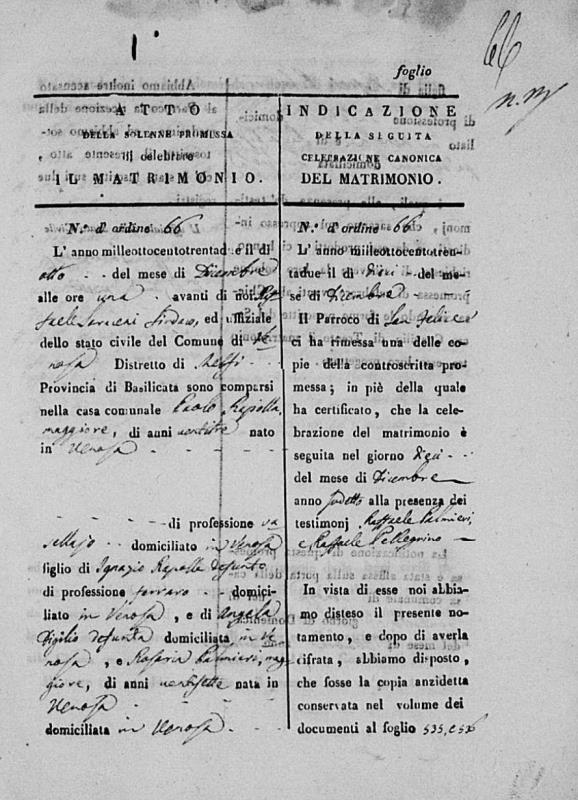 1°
foglio
66
ATTO
DELLA SOLENNE PROMESSA
di celebrare
IL MATRIMONIO.
N.° d' ordine 66
L' anno milleottocentotrentadue il dì
otto - - del mese di Dicembre
alle ore una - avanti di noi Raf
faele Sindaco, ed uffiziale
dello stato civile del Comune di Ve
nosa Distretto di Melfi
Provincia di Basilicata sono comparsi
nella casa comunale Paolo Rapolla,
maggiore, di anni ventitre nato
in Venosa
di professione va
sellajo domiciliato in Venosa
figlio di Ignazio Rapolla defunto
di professione ferraro - domici-
liato in Venosa, e di Angela
Vigilio defunta domiciliata in Ve
nosa, e Rosaria Palmieri, mag
giore, di anni ventisette nata in
Venosa
domiciliata in Venosa
INDICAZIONE
DELLA SEGUITA
CELEBRAZIONE CANONICA
DEL MATRIMONIO.
N.° d' ordine 66
L' anno milleottocentotren-
tadue il dì dieci - del me-
se di Dicembre
Il Parroco di San Felice
ci ha rimessa una delle co-
pie della controscritta pro-
messa; in piè della quale
ha certificato, che la cele-
brazione del matrimonio è
seguita nel giorno dieci - -
del mese di Dicembre
anno sudetto alla presenza dei
testimonj Raffaele Palmieri,
e Raffaele Pellegrino
In vista di esse noi abbia-
mo disteso il presente no-
tamento, e dopo di averla
cifrata, abbiamo disposto,
che fosse la copia anzidetta
conservata nel volume dei
documenti al foglio 535, e 536